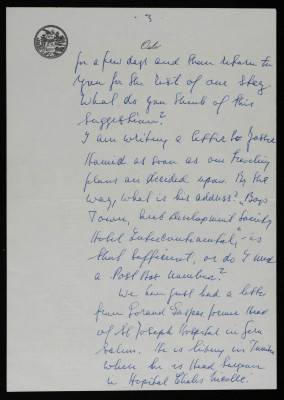 3
for a few days and then return to
you for the rest of our stay.
What do you think of this
suggestion?
I am writing a letter to
Hamid as soon as our travelling
plans are decided upon. By the
way, what is his address? "Boys
Town, Arab Development Society
Hotel Intercontinental," - is
that sufficient, or do I need
a Post Box number?
We have just had a letter
from Lorand Gaspar former Head
of St Joseph Hospital in Jeru
salem. He is living in Tunisia
where he is Head Surgeon
in Hopital Charles Nicolle.